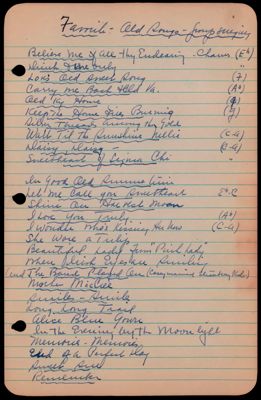 Famili - Old Songs - Group Singing
Believe Me if All Thy Endearing - Charms (Eb)
Drink
Love's Old Sweet Song (F)
Carry me Back Old Va. (Ab)
Old Ky Home
Keep the Home Fires Burning
Silver Threads Among the Gold
Wait Till the Sunshine Nellie (C-G)
Daisy, Daisy - (C-G)
Sweetheart of Sigma Chi "
In Good Old Summer Time
Let Me Call you Sweetheart Eb-C
Shine On Harvest Moon
I Love You Truly (Ab)
I Wonder Who's Kissing Her Now (C-G)
She Wore a Tulip
Beautiful Lady from "Pink Lady"
When Irish Eyes Are Smiling
and The Band Played On
Mother Machree
Smiles - Smiles
Long Long Trail
Alice Blue Gown
In the Evening by the Moonlight
Memories - Memories
End of a Perfect Day
Sweet
Remember